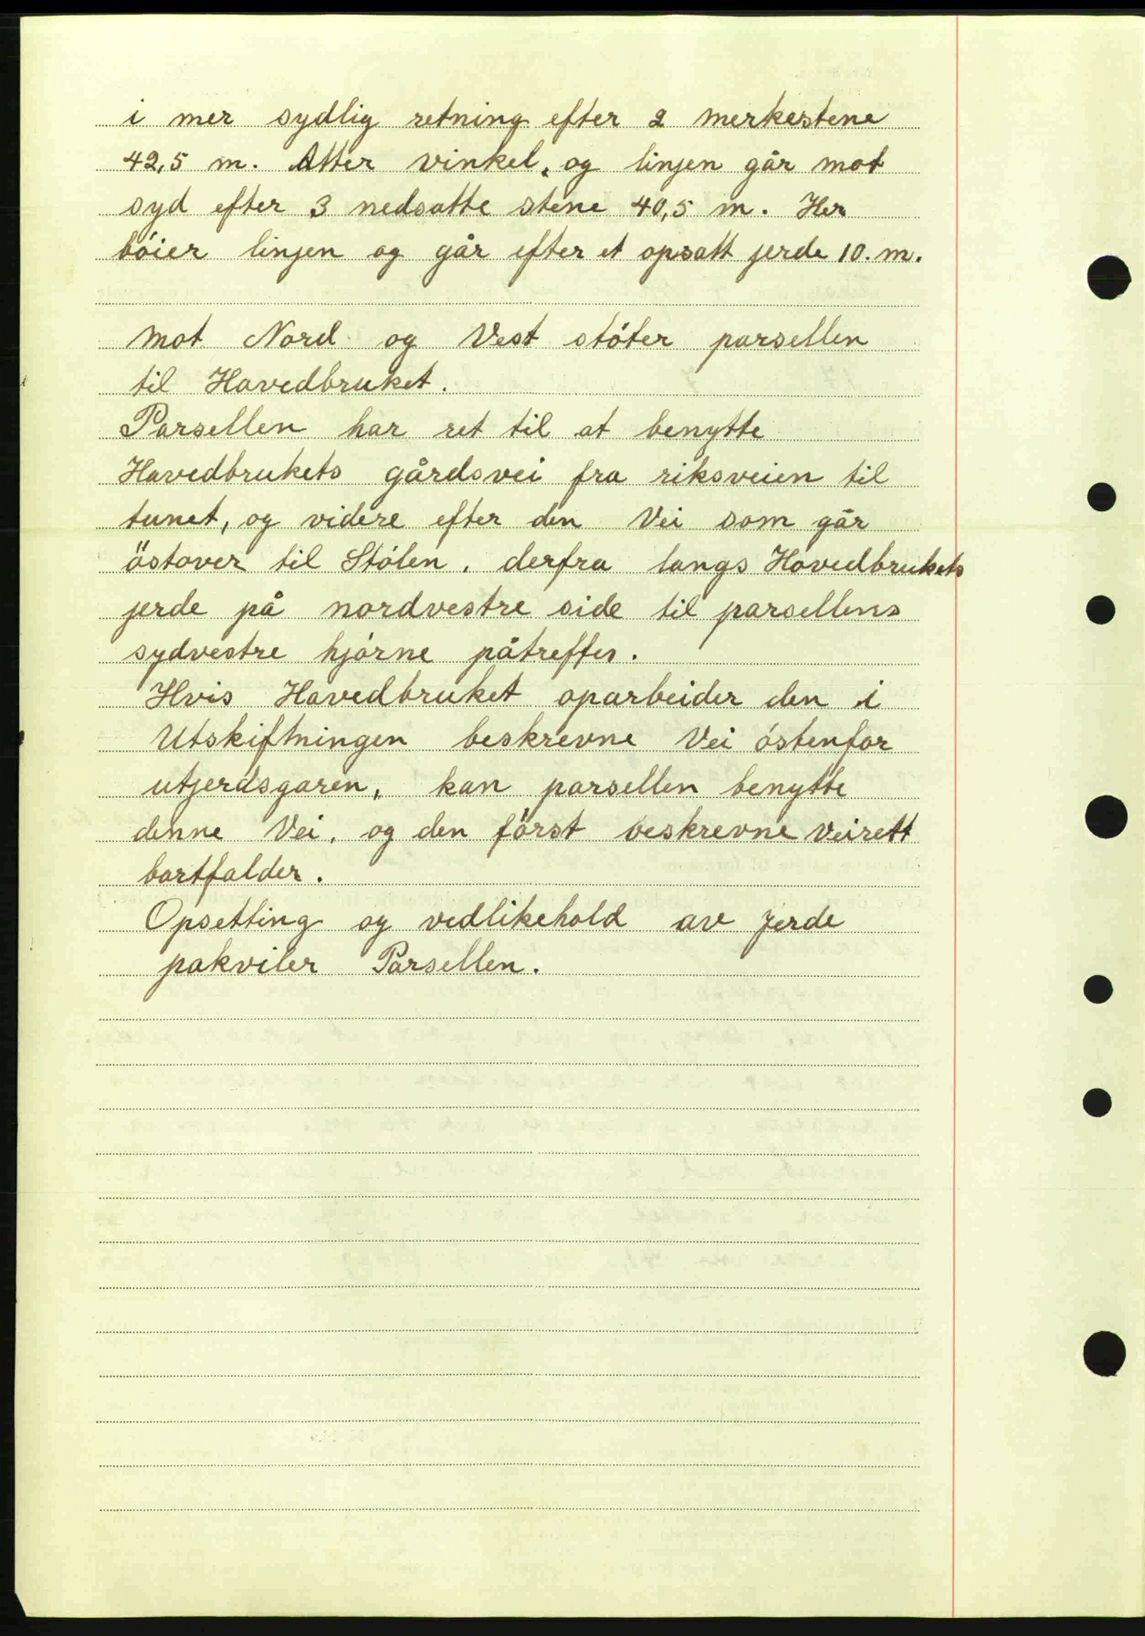 i mer sydlig retning efter 2 merkestene
42,5 m. Atter vinkel, og linjen går mot
syd efter 3 nedsatte stene 40,5 m. Her
böier linjen og går efter et opsatt jerde 10. m.
Mot Nord og Vest stöter parsellen
til Hovedbruket.
Parsellen har ret til at benytte
Hovedbrukets gårdsvei fra riksveien til
tunet, og videre efter den Vei som går
östover til Stölen, derfra langs Hovedbrukets
jerde på nordvestre side til parsellens
sydvestre hjörne påtreffes.
Hvis Hovedbruket oparbeider den i
Utskiftningen beskrevne Vei östenfor
utjerdsgaren, kan parsellen benytte
denne Vei, og den först beskrevne veirett
bortfalder.
Opsetting og vedlikehold av jerde
pakviler Parsellen.